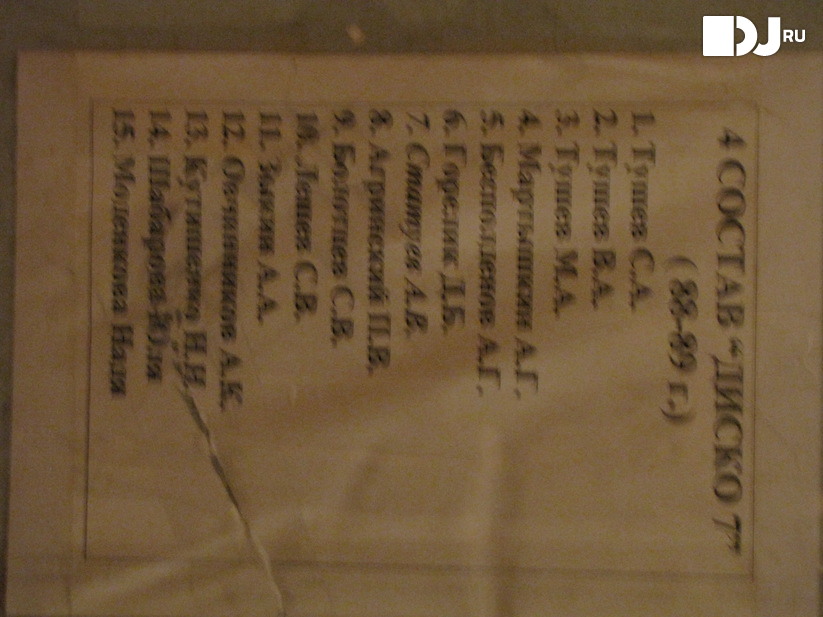 4 СОСТАВ “ДИСКО 7”
( 88-89 г.)
1. Тушев С.А.
2. Тушев В.А.
3. Тушев М.А.
4. Мартышкин А.Г.
5. Бесполденов А.Г.
6. Горелик Д.Б.
7. Статуев А.В.
8. Агринский П.В.
9. Болотцев С.В.
10. Лешев С.В.
11. Зыкин А.А.
12. Овчинников А.К.
13. Кутищенко Н.Н.
14. Шабарова Юля
15. Моденкова Надя
DJ RU